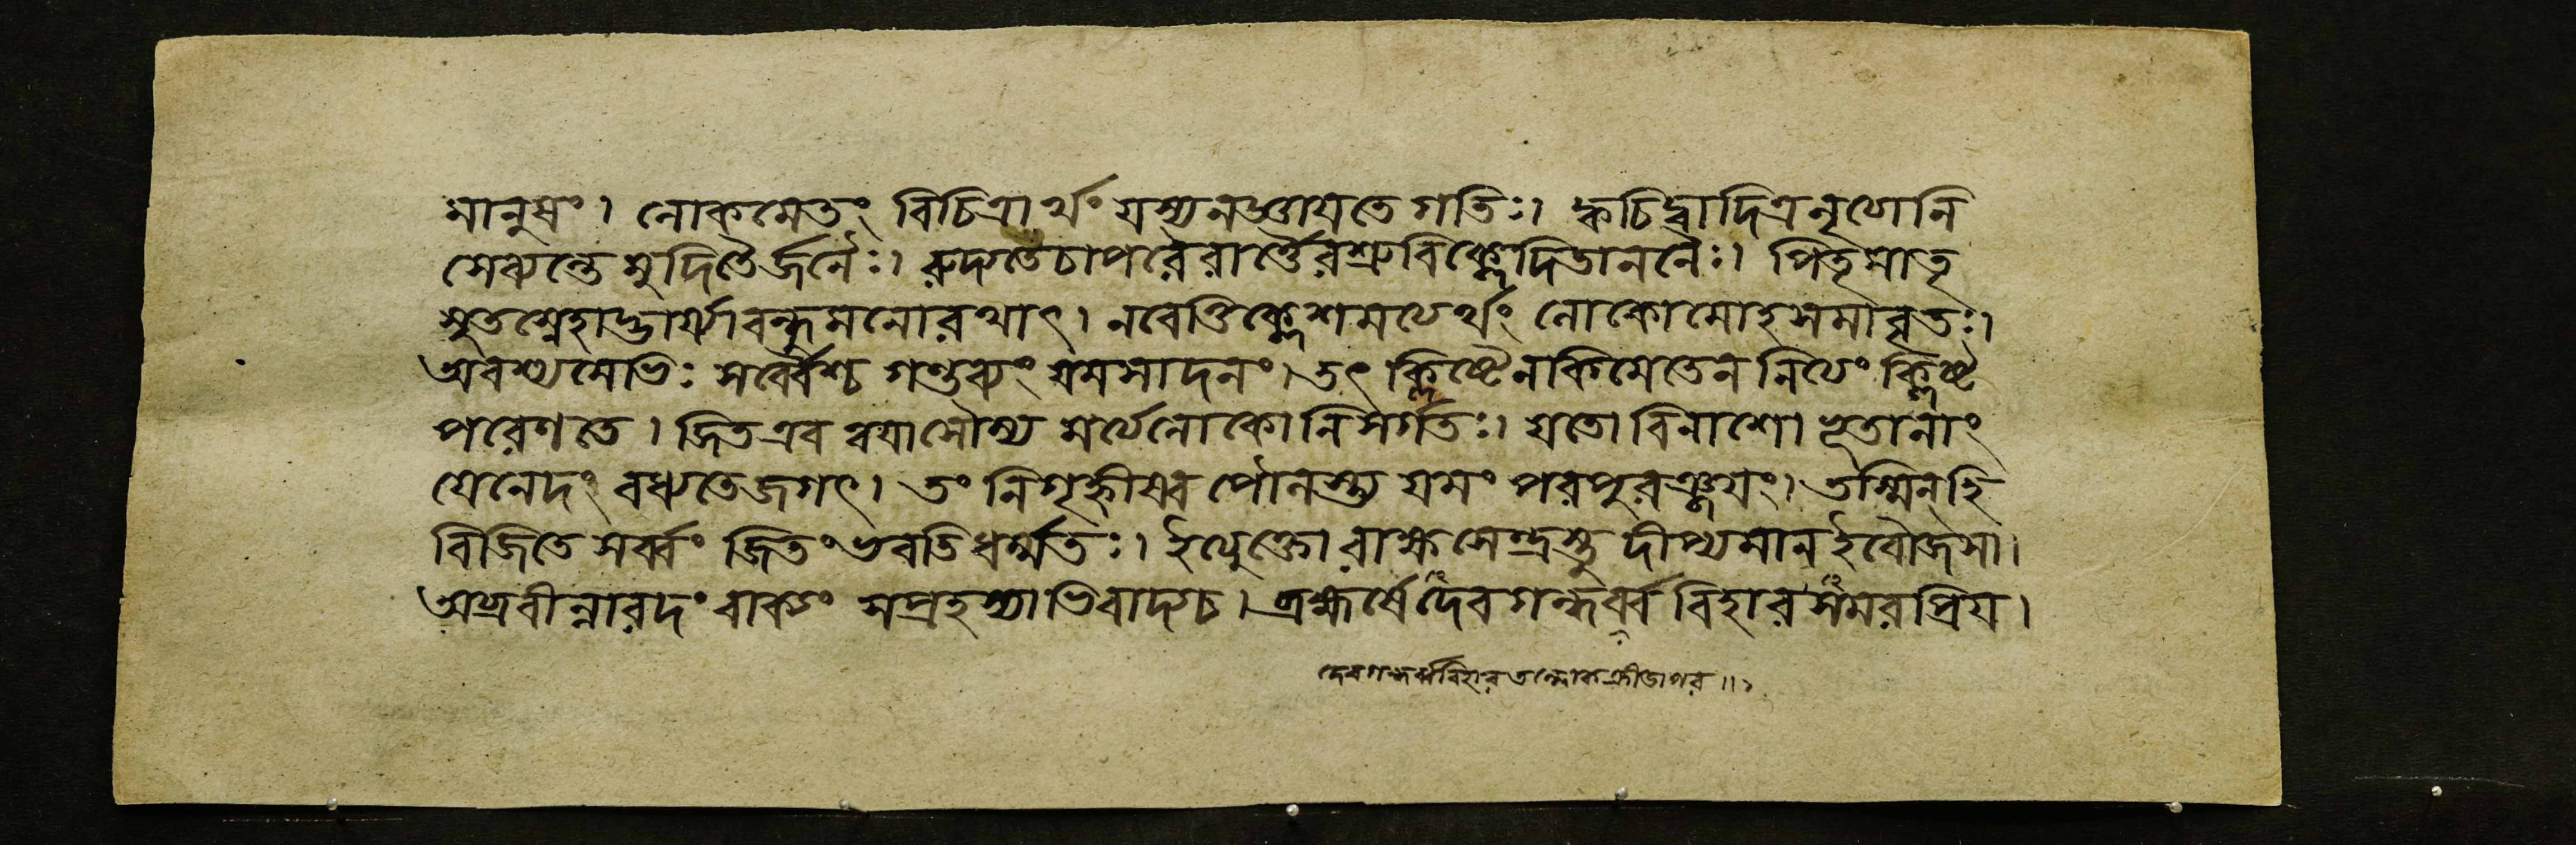 মানুষং। লোকমেতং বিচিত্রার্থং যস্য ন জ্ঞায়তে গতিঃ। ক্বচিদ্বাদিত্রনৃত্যানি
সেব্যন্তে মুদিতৈর্জনৈঃ। রুদ্যতে চাপরৈরার্ত্তৈরশ্রুবিক্লেদিতাননৈঃ। পিতৃমাতৃ
সুতস্নেহাদ্ভার্য্যাবন্ধুমনোরথাৎ। নবেত্তি ক্লেশমত্যর্থং লোকো মোহসমাবৃতঃ।
অবশ্যমেভিঃ সর্ব্বৈশ্চ গন্তব্যং যমসাদনং। তৎ ক্লিষ্টেন কিমেতেন নিত্যং ক্লিষ্টে
পরেণ তে। জিত এব ত্বয়া সৌম্য মর্ত্যলোকো নিসর্গতঃ। যতো বিনাশো ভূতানাং
যেনেদং বধ্যতে জগৎ। তং নিগৃহ্ণীষ্ব পৌলস্ত্য যমং পরপুরঞ্জয়ং। তস্মিন্ হি
বিজিতে সর্ব্বং জিতং ভবতি ধর্ম্মতঃ। ইত্যুক্তো রাক্ষসেন্দ্রস্তু দীপ্যমান ইবৌজসা।
অব্রবীন্নারদং বাক্যং সপ্রহস্যাভিবাদ্য চ। ব্রহ্মর্ষে দেবগন্ধর্ব্ববিহারসমরপ্রিয়।